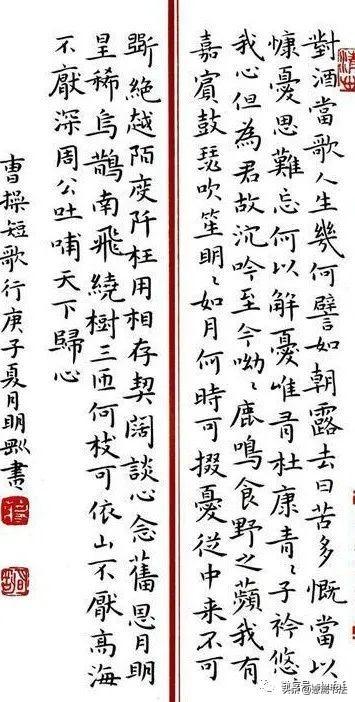 對酒當歌人生幾何譬如朝露去日苦多慨當以
慷憂思難忘何以解憂唯有杜康青〻子衿悠
我心但為君故沉吟至今呦〻鹿鳴食野之蘋我有
嘉賓鼓瑟吹笙明〻如月何時可掇憂從中来不可
斷絕越陌度阡枉用相存契闊談心念舊恩月明
星稀烏鵲南飛繞樹三匝何枝可依山不厭高海
不厭深周公吐哺天下歸心
曹操短歌行庚子夏月明書